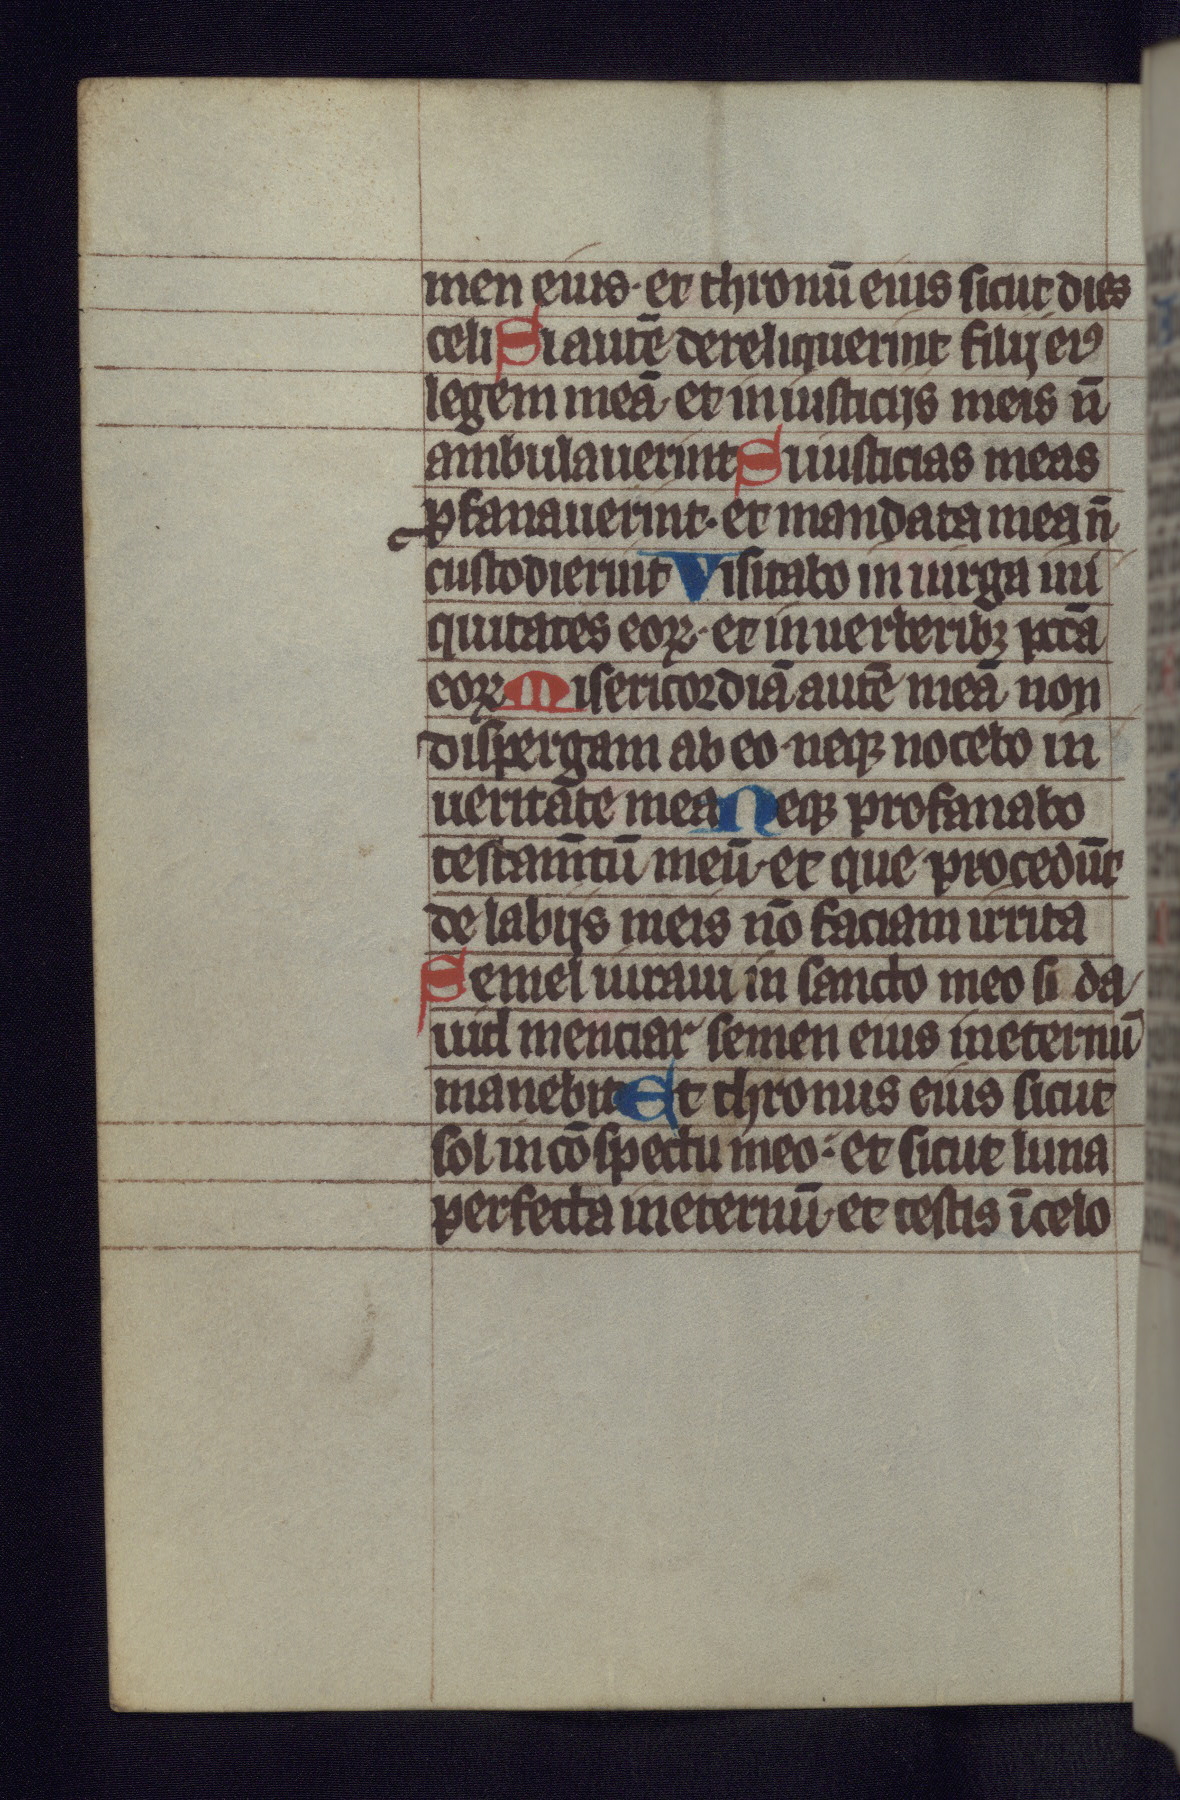 men eius· et thronū eius sicut dies
celi Si autē dereliquerint filij eiꝰ
legem meā· et in iusticijs meis n̄
ambulauerint Si iusticias meas
ꝓfanauerint· et mandata mea n̄
custodierint Visitabo in uirga ini
quitates eoꝝ· et in uerberibꝫ pctā
eoꝝ Misericordiā autē meā non
dispergam ab eo· neqꝫ nocebo in
ueritate mea Neqꝫ profanabo
testam̄tū meū· et que procedūt
de labijs meis nō faciam irrita
Semel iuraui in sancto meo si da
uid menciar semen eius in eternū
manebit Et thronus eius sicut
sol in cōspectu meo· et sicut luna
perfecta in eternū· et testis ī celo